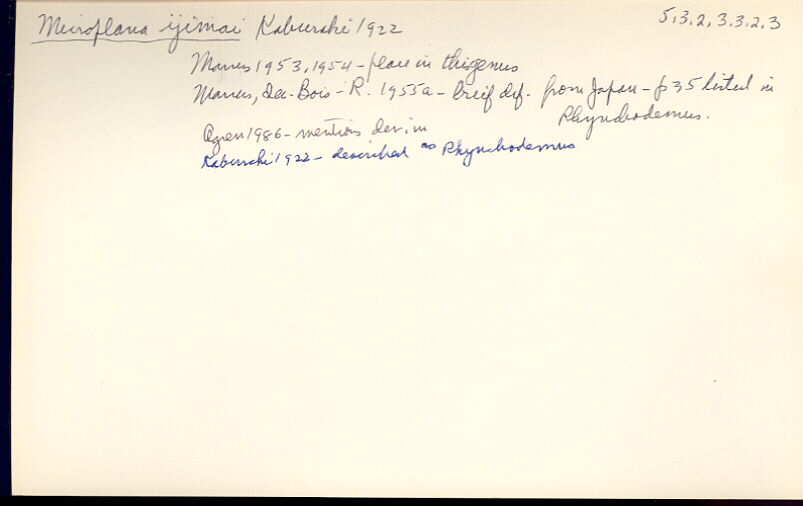 Microplana ijimai Kaburaki 1922
5.3.2, 3.3.2.3
Marcus 1953, 1954 - place in this genus
Marcus, du-Bois-R. 1955a - breif def. from Japan - p 35 listed in
Rhynchodemus.
Ogren 1986 - mentions dev. in
Kaburaki 1922 - described as Rhynchodemus